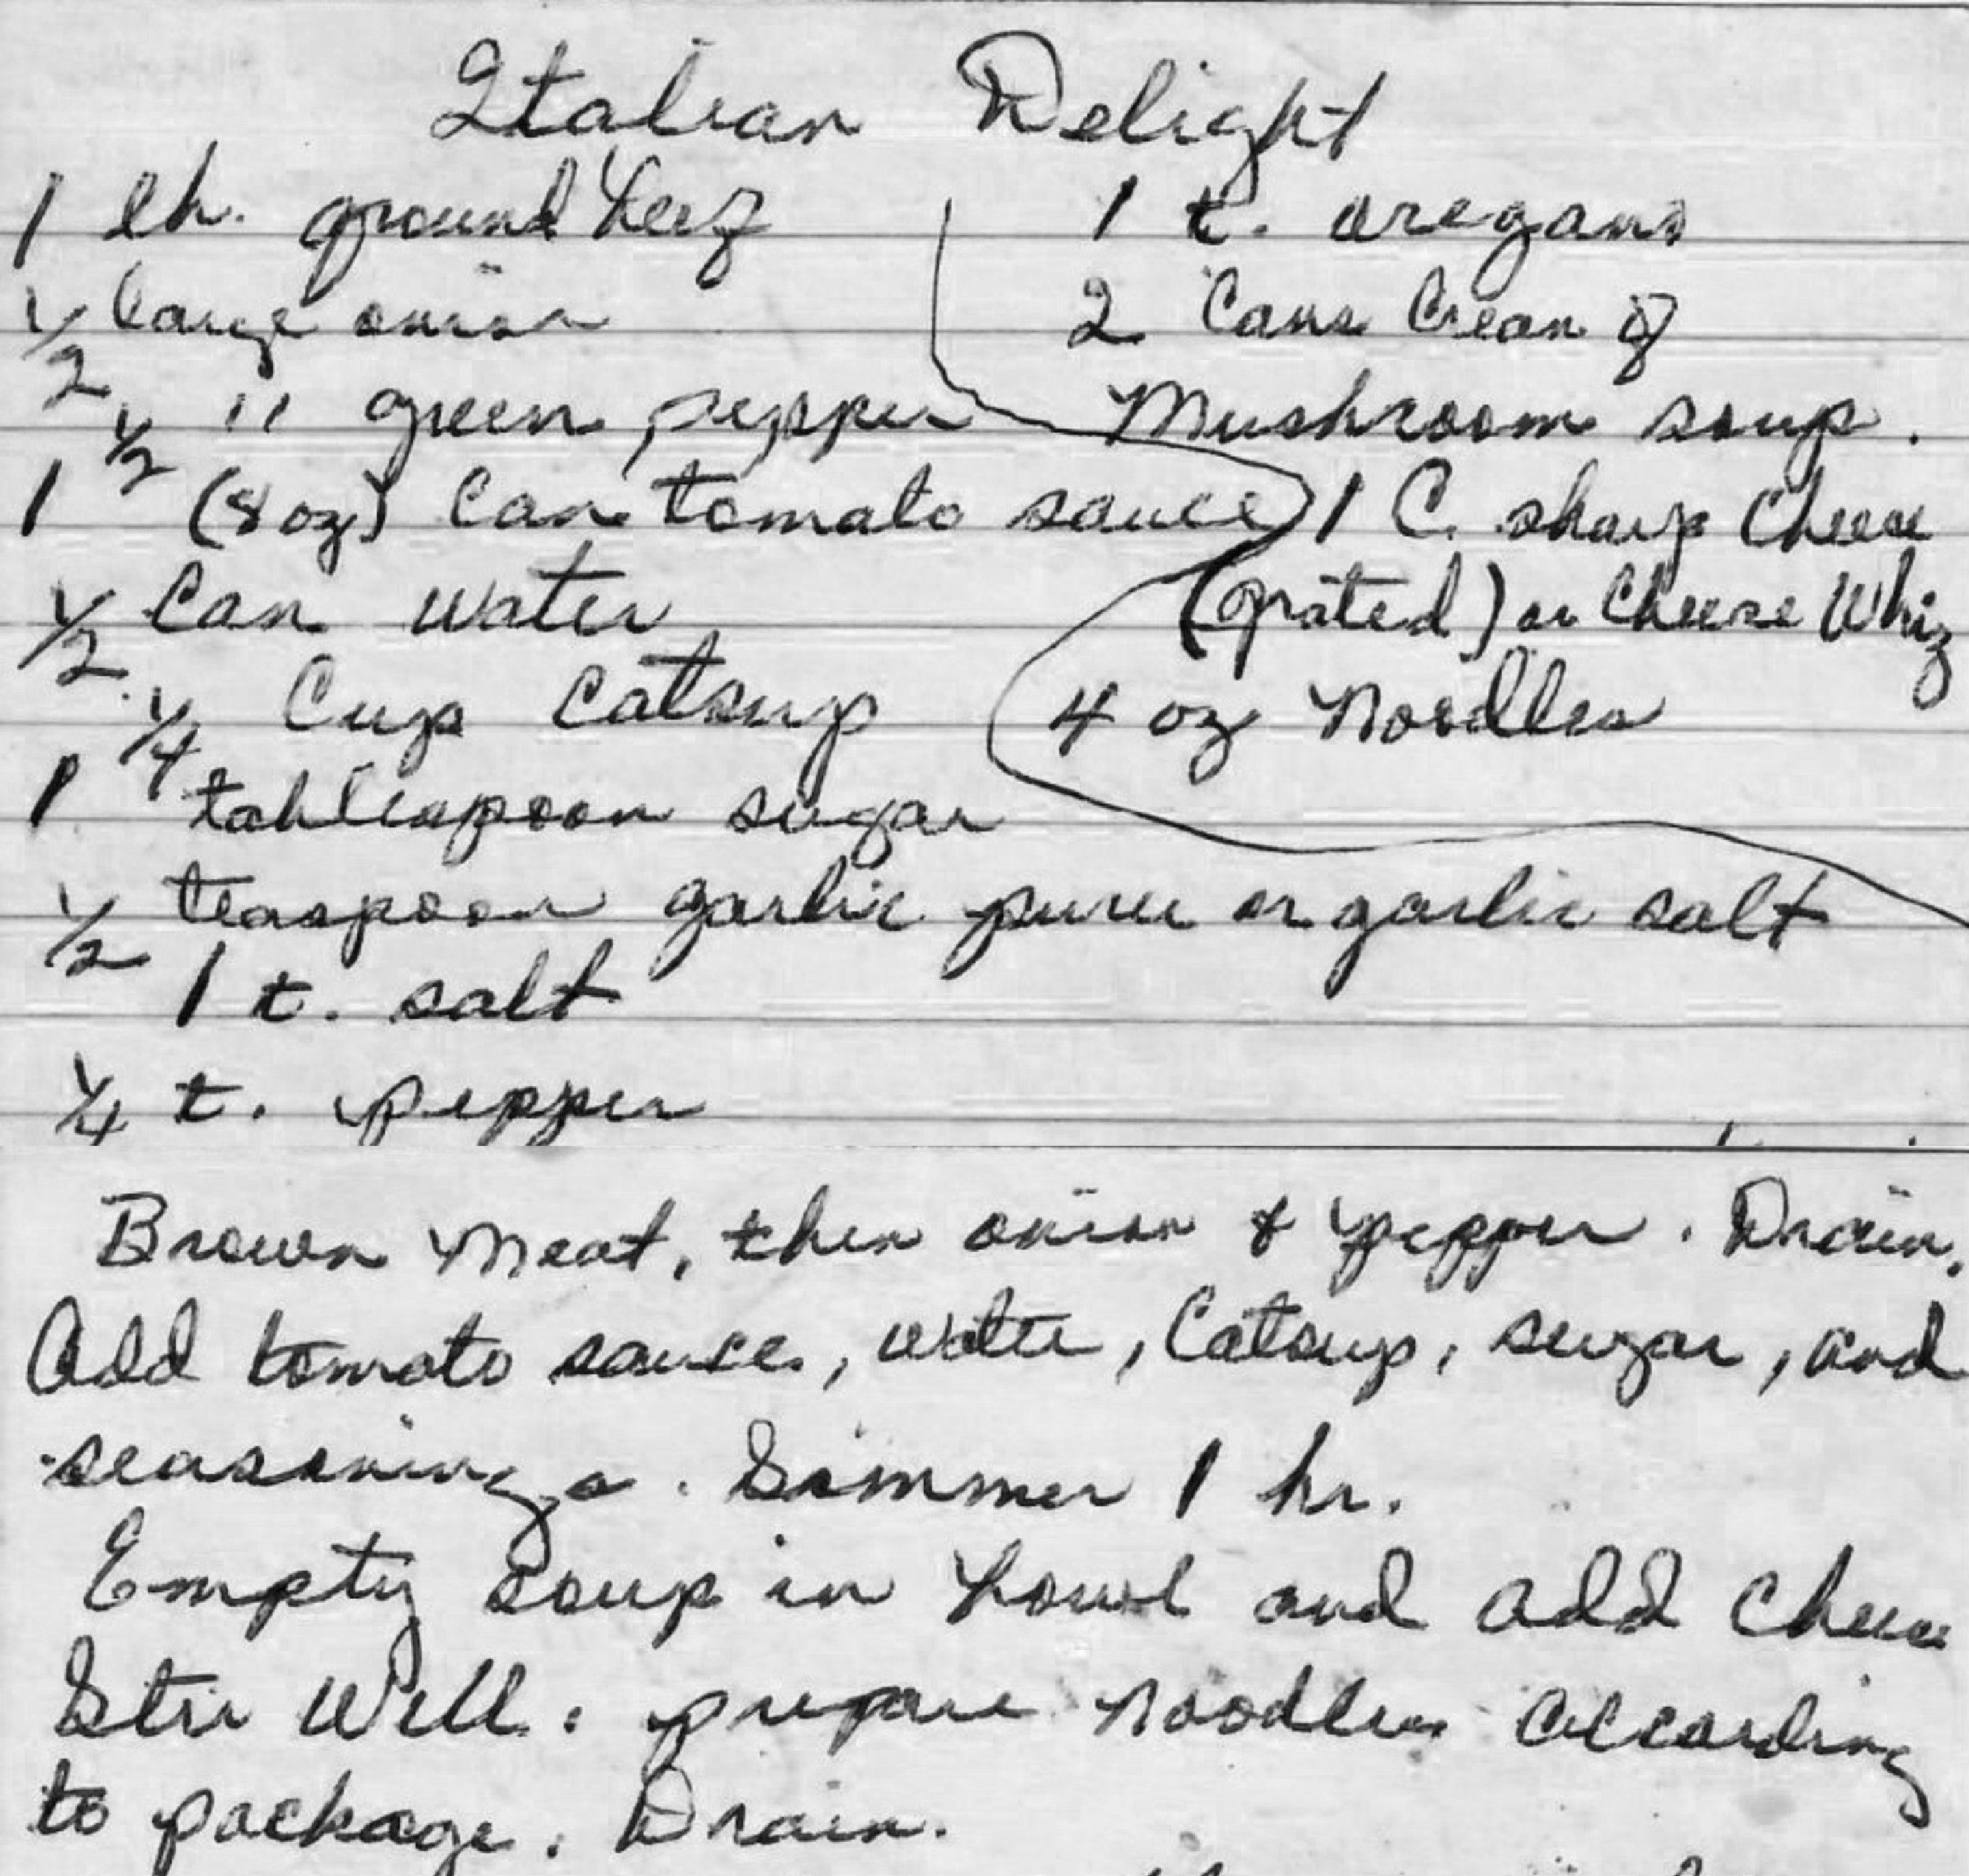 Italian Delight
1 lb. ground beef
1/2 large onion
1/2 " green pepper
1 (8 oz) can tomato sauce
1/2 can water
1/4 Cup Catsup
1 tablespoon sugar
1/2 teaspoon garlic puree or garlic salt
1 t. salt
1/4 t. pepper
1 t. oregano
2 Cans Cream of
Mushroom soup.
1 C. sharp Cheese
(grated) or Cheese Whiz
4 oz Noodles
Brown Meat, then onion & pepper. Drain.
Add tomato sauce, water, Catsup, sugar, and
seasonings. Simmer 1 hr.
Empty soup in bowl and add Cheese
Stir Well. prepare Noodles According
to package. Drain.